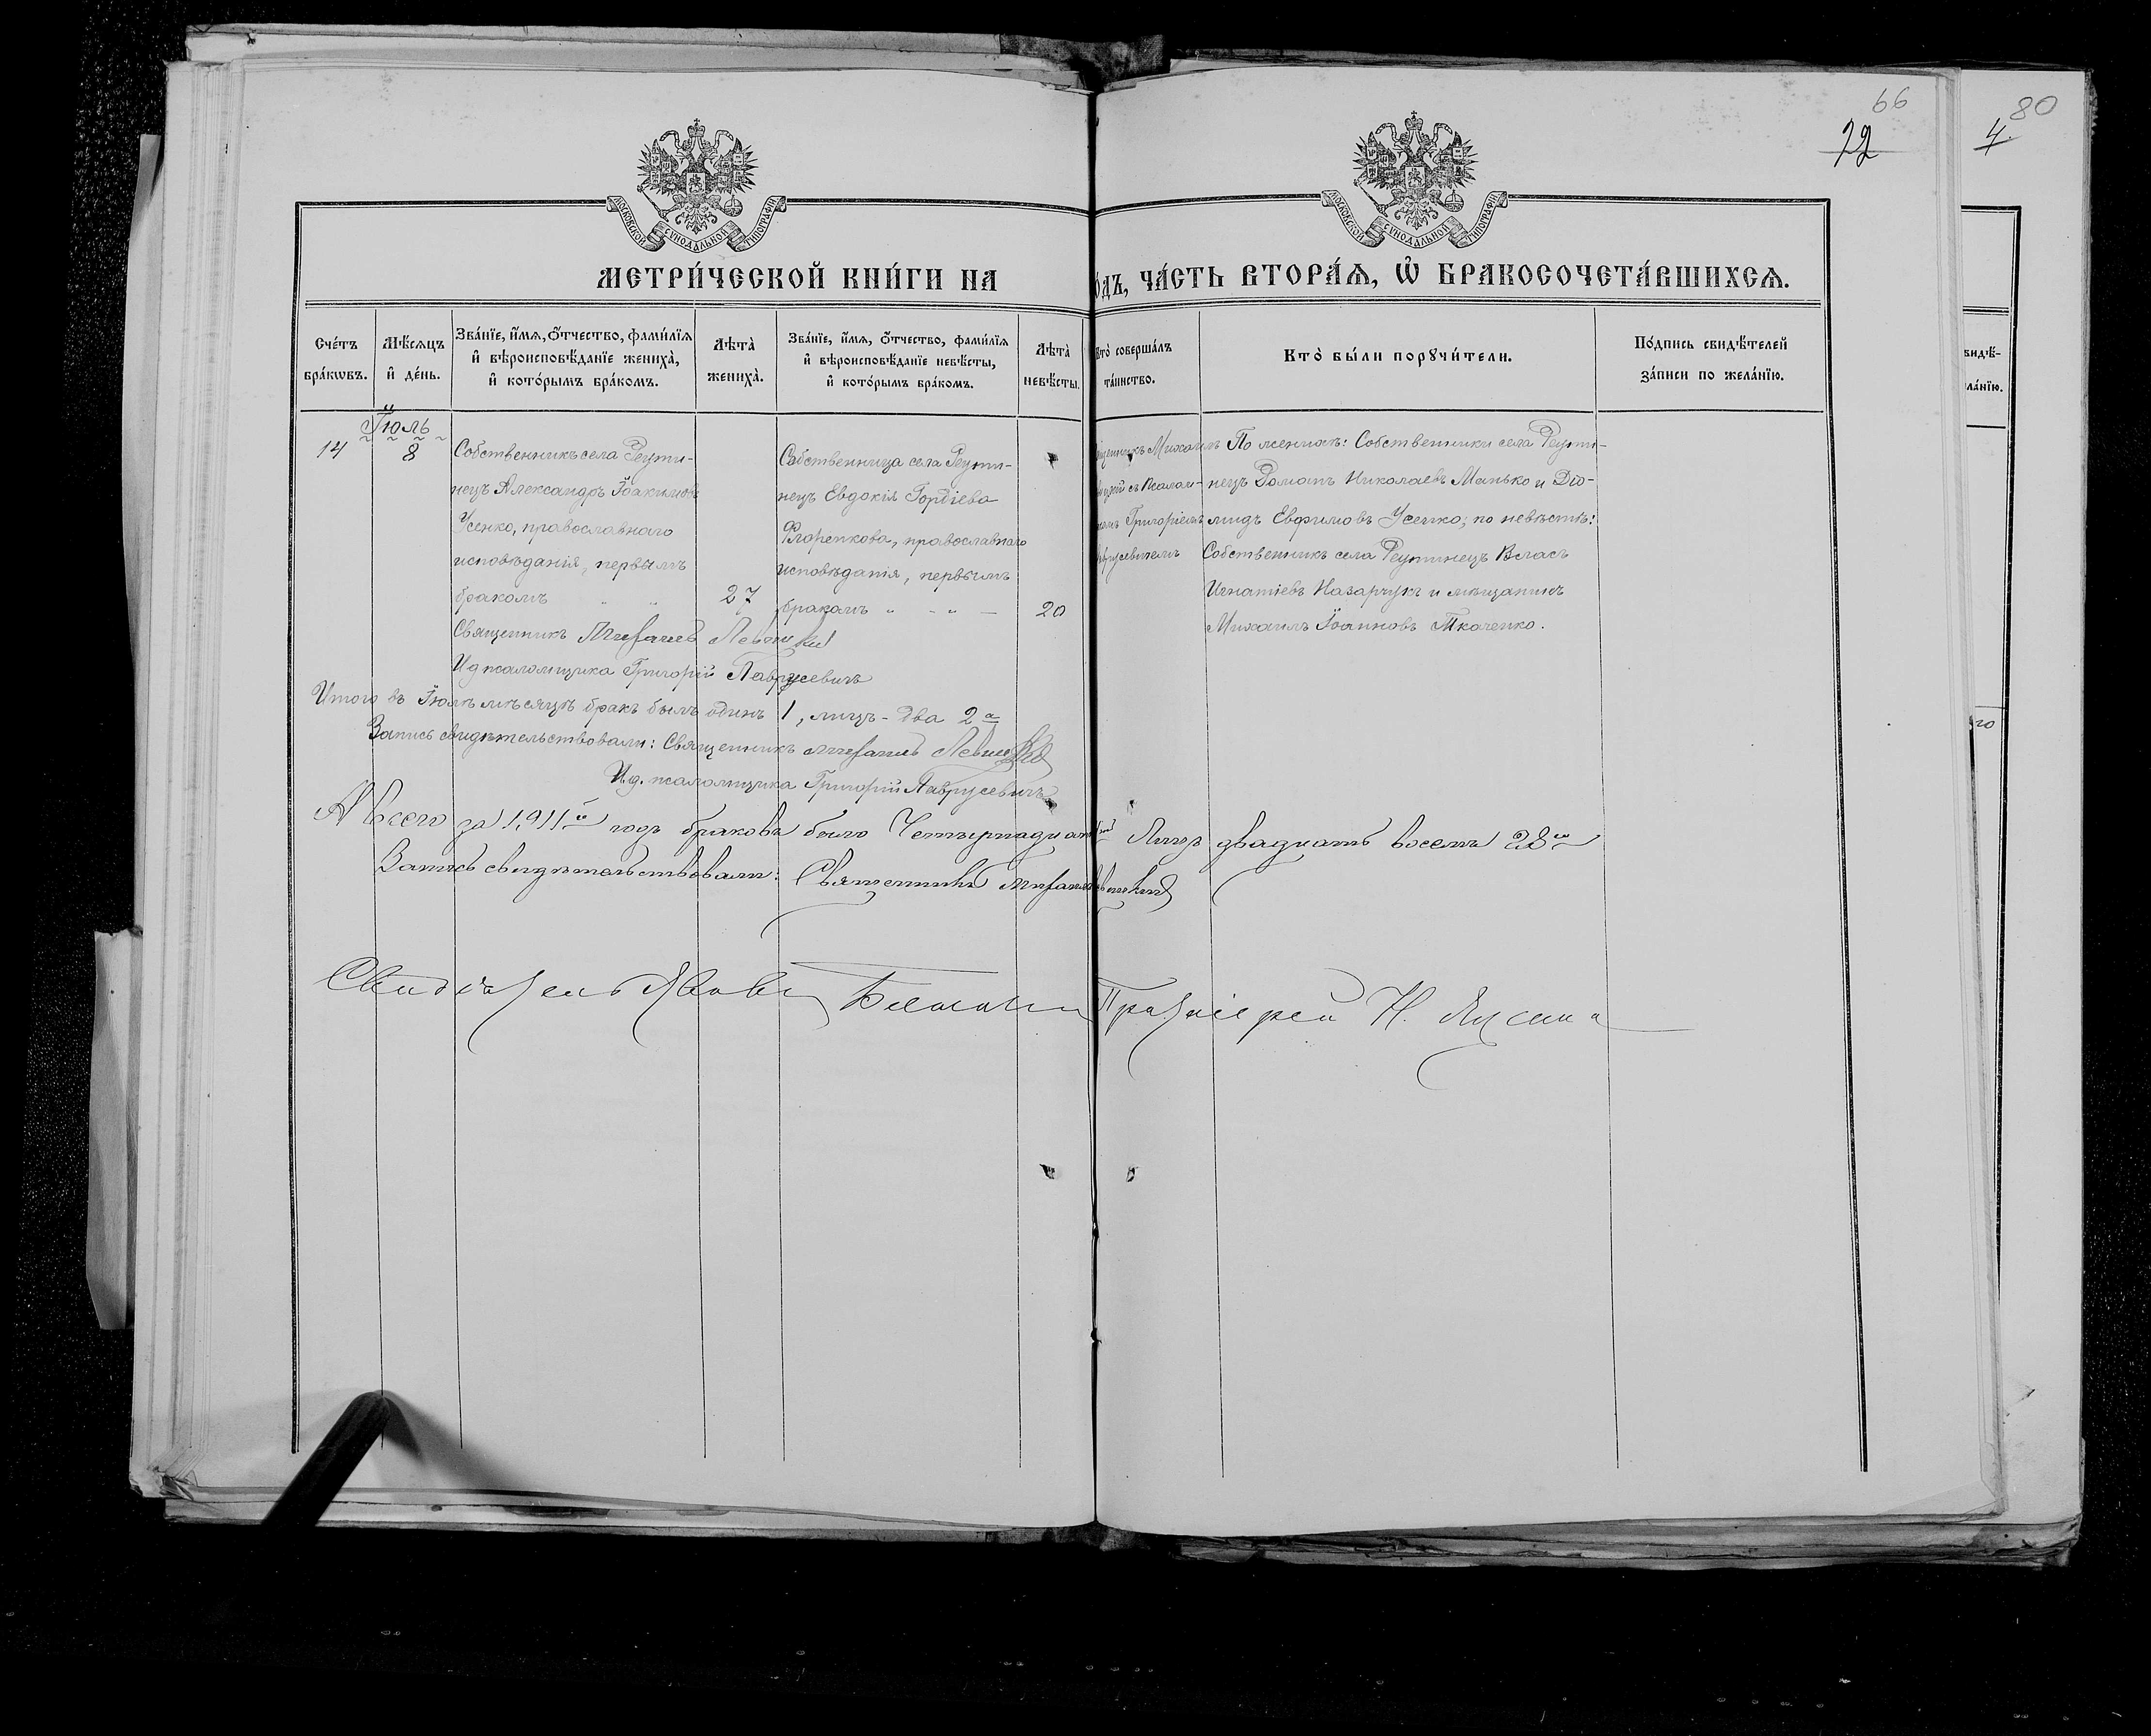 66
72
80
4
МОСКОВСКОЙ СѴНОДАЛЬНОЙ ТИПОГРАФІИ
МОСКОВСКОЙ СѴНОДАЛЬНОЙ ТИПОГРАФІИ
МЕТРИ́ЧЕСКОЙ КНИ́ГИ НА
О́ДЪ, ЧА́СТЬ ВТОРА́Ѧ, Ѽ БРАКОСОЧЕТА́ВШИХСѦ.
Сче́тъ
бра́кѡвъ.
Мѣ́сяцъ
и҆ де́нь.
Зва́нїе, и҆́мя, ѻ҆́тчество, фами́лїя
и҆ вѣроисповѣ́данїе жениха̀,
и҆ кото́рымъ бра́комъ.
Лѣта̀
жениха̀.
Зва́нїе, и҆́мя, ѻ҆́тчество, фами́лїя
и҆ вѣроисповѣ́данїе невѣ́сты,
и҆ кото́рымъ бра́комъ.
Лѣта̀
невѣ́сты.
Кто̀ соверша́лъ
та́инство.
Кто̀ бы́ли порꙋчи́тели.
По́дпись свидѣ́телей
за́писи по жела́нїю.
видѣ́-
ла́нїю.
Іюль
14
8
Собственникъ села Реути-
нецъ Александръ Іоакимовъ
Усенко, православнаго
исповѣданія, первымъ
бракомъ " "
27
Собственница села Реути-
нецъ Евдокія Гордіева
Флоренкова, православнаго
исповѣданія, первымъ
бракомъ " - " —
20
щенникъ Михаилъ
съ Псалом-
Григоріемъ
По женихѣ: Собственники села Реути-
нецъ Романъ Николаевъ Манько и Дио-
мидъ Евфимовъ Усенко; по невѣстѣ:
Собственникъ села Реутинецъ Власъ
Игнатіевъ Назарчукъ и мѣщанинъ
Михаилъ Іоанновъ Ткаченко.
Священникъ Михаилъ Левицкій
И д псаломщика Григорій Лаврусевичъ
Итого въ Іюлѣ мѣсяцѣ бракъ былъ одинъ 1, лицъ - два 2 а
Запись свидѣтельствовали: Священникъ Михаилъ Левицкій
И.д. псаломщика Григорій Лаврусевичъ
А всего за 1911й годъ браковъ было Четырнадцать Лицъ двадцать восемь 28
Запись свидѣтельствовали: Священникъ Михаилъ Левицкій
Протоіерей Н.
го